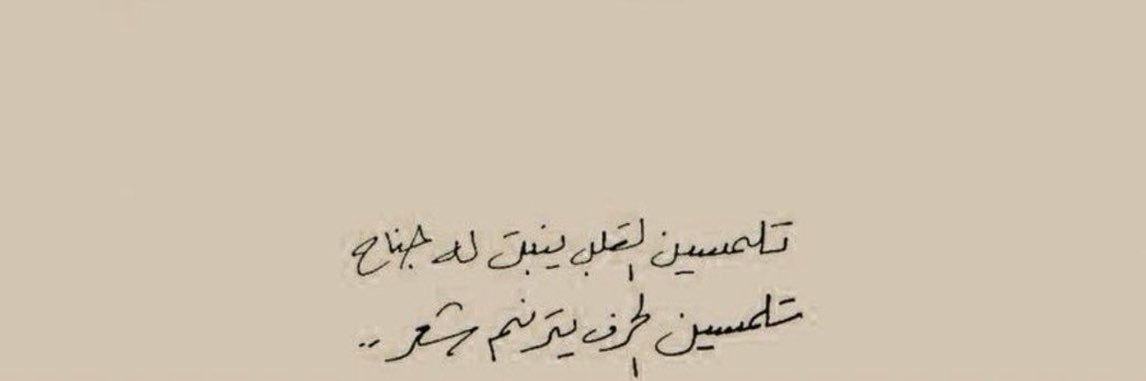 تلمسين القلب ينبت له جناح
تلمسين الحرف يترنم شعر ..